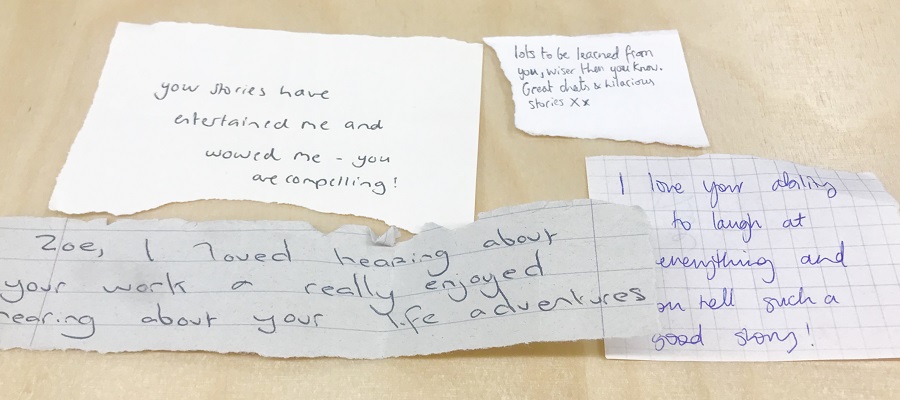 your stories have
entertained me and
wowed me - you
are compelling!
lots to be learned from
you, wiser then you know.
Great chats & hilarious
stories xx
Zoe, I loved hearing about
your work & really enjoyed
hearing about your life adventures
I love your ability
to laugh at
everything and
tell such a
good story!